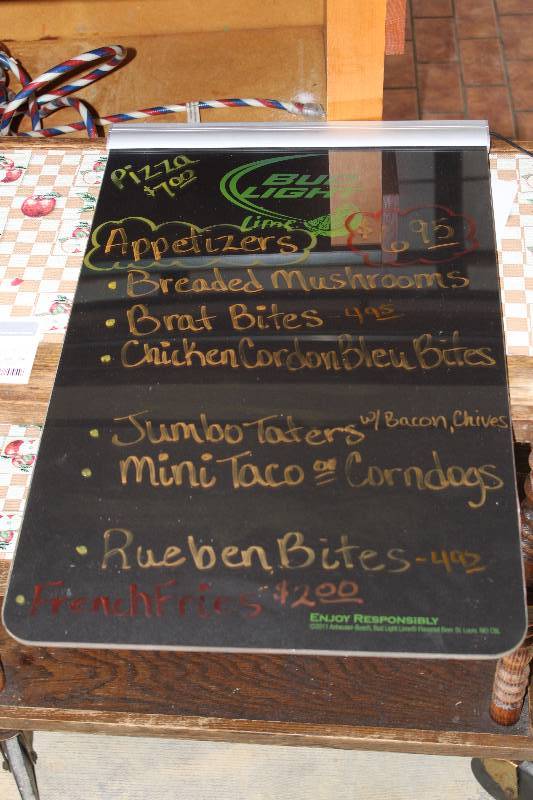 Pizza
$7.00
BUD
LIGHT
Lime
Appetizers $6.95
• Breaded Mushrooms
• Brat Bites - 4.95
• Chicken Cordon Bleu Bites
• Jumbo Taters w/ Bacon, Chives
• Mini Taco or Corndogs
• Rueben Bites - 4.95
• French Fries $2.00
ENJOY RESPONSIBLY
©2011 Anheuser-Busch, Bud Light Lime® Flavored Beer, St. Louis, MO